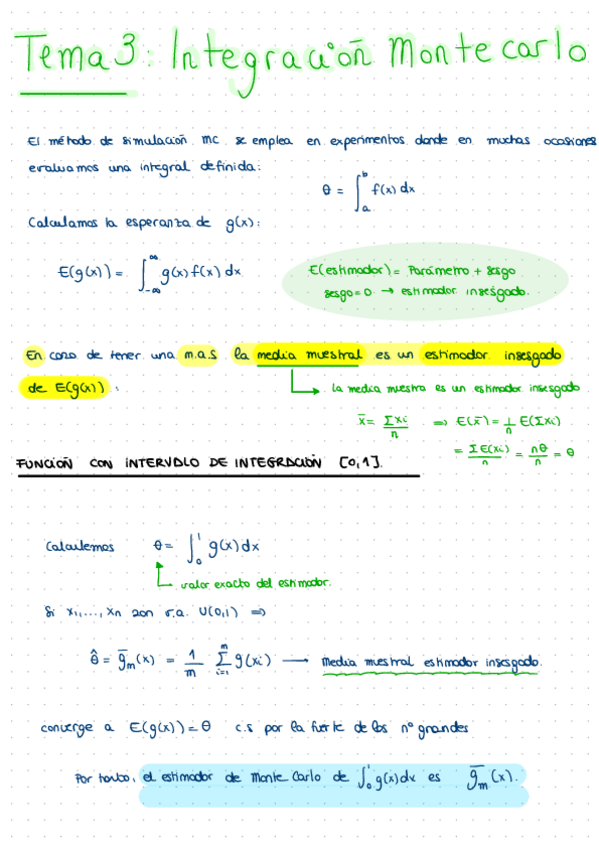 Tema 3: Integración Montecarlo
El método de simulación MC se emplea en experimentos donde en muchas ocasiones
evaluamos una integral definida:
θ = ∫_a^b f(x) dx
Calculamos la esperanza de g(x):
E(g(x)) = ∫_{-∞}^{∞} g(x) f(x) dx
E(estimador) = Parámetro + sesgo
sesgo = 0 → estimador insesgado.
En caso de tener una m.a.s la media muestral es un estimador insesgado
de E(g(x)):
la media muestra es un estimador insesgado
x̄ = Σxi/n ⇒ E(x̄) = 1/n E(Σxi)
= ΣE(xi)/n = nθ/n = θ
FUNCIÓN CON INTERVALO DE INTEGRACIÓN [0,1].
Calculemos θ = ∫_0^1 g(x) dx
valor exacto del estimador.
Si x1,..., xn son v.a. U(0,1) ⇒
θ̂ = ḡm(x) = 1/m Σ_{i=1}^m g(xi) → media muestral estimador insesgado.
converge a E(g(x)) = θ c.s por la fuerte de los nº grandes
Por tanto, el estimador de Monte Carlo de ∫_0^1 g(x) dx es ḡm(x).